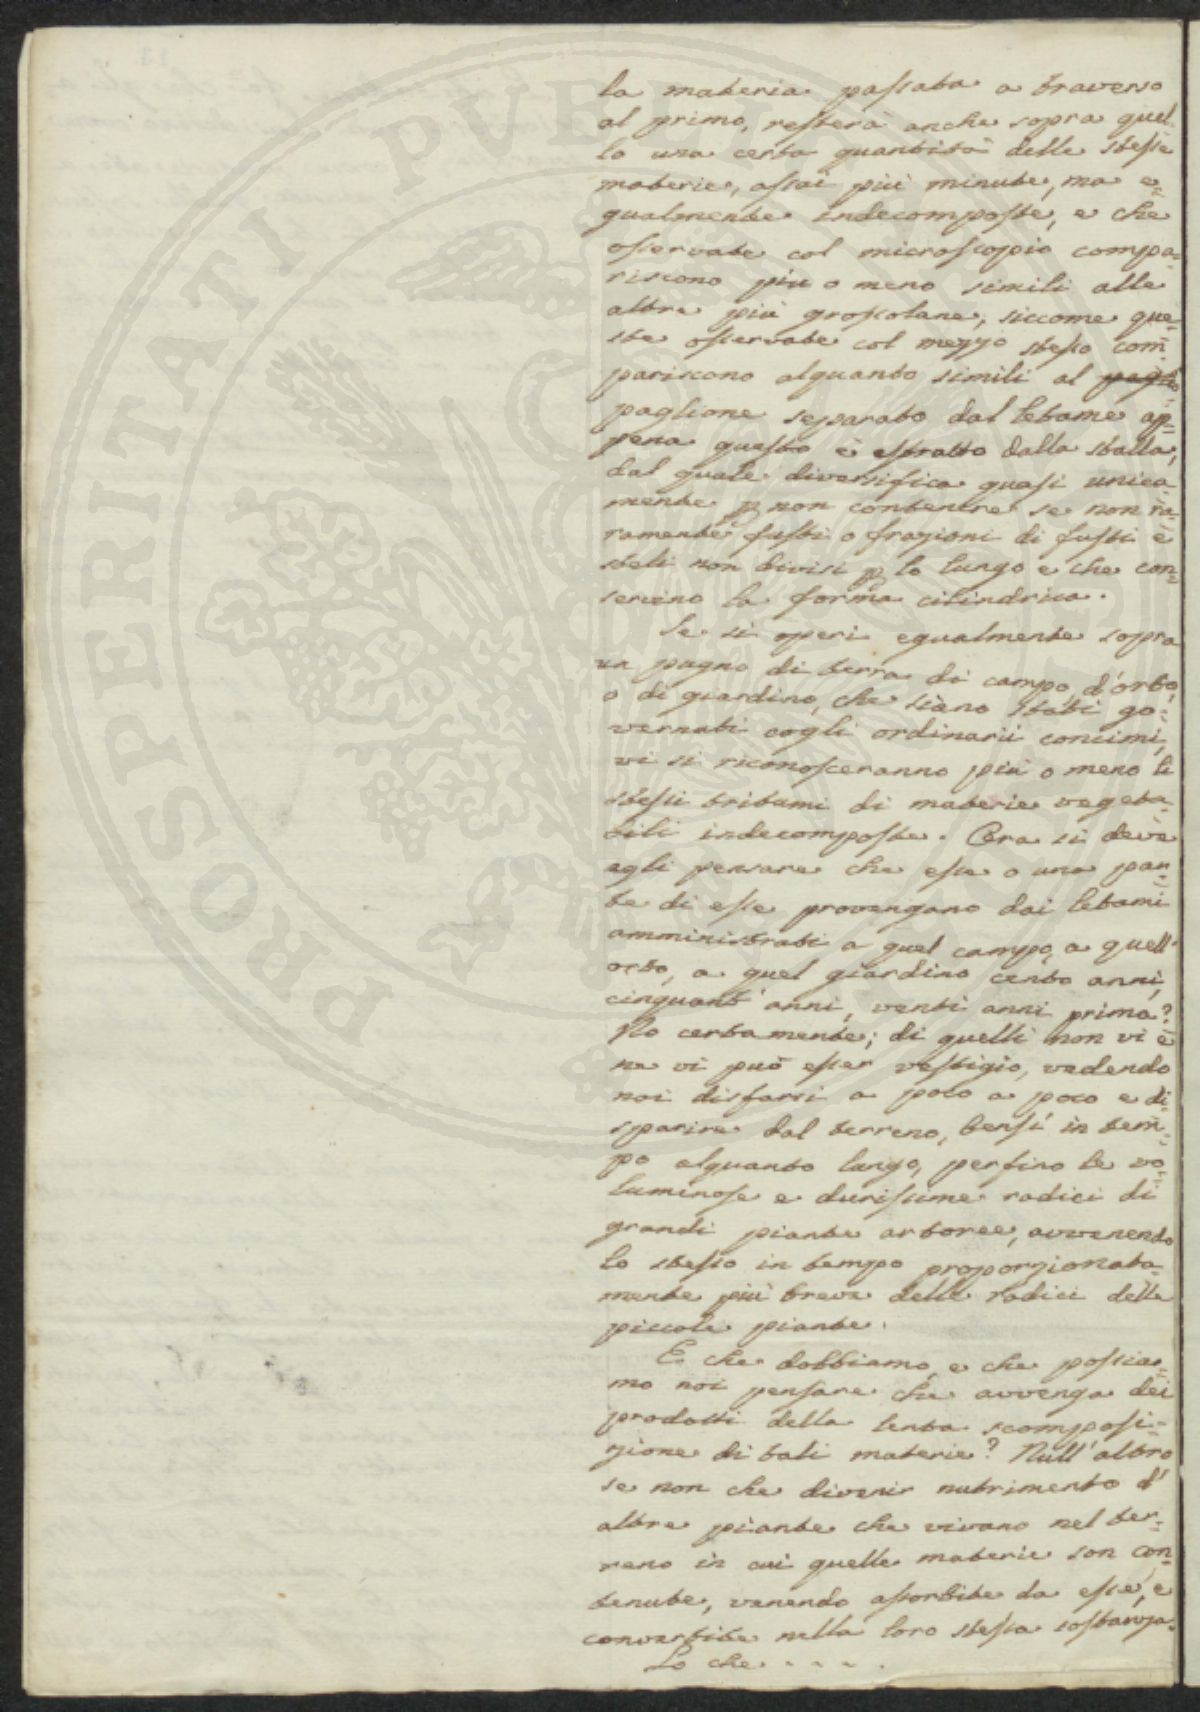 la materia passata a traverso
al primo, resterà anche sopra quel-
lo una certa quantità delle stesse
materie, assai più minute, ma e-
gualmente indecomposte, e che
osservate col microscopio compa-
riscono più o meno simili alle
altre più grossolane, siccome que-
ste osservate col mezzo stesso com-
pariscono alquanto simili al
paglione separato dal letame ap-
pena questo è estratto dalla stalla,
dal quale diversifica quasi unica-
mente p non contenere se non ra-
ramente fusti o frazioni di fusti e
steli non divisi p lo lungo e che con-
servino la forma cilindrica.
Se si operi egualmente sopra
un pugno di terra di campo, d'orto,
o di giardino, che siano stati go-
vernati cogli ordinarii concimi,
vi si riconosceranno più o meno li
stessi tritumi di materie vegeta-
bili indecomposte. Ora si deve
egli pensare che esse o una par-
te di esse provengano dai letami
amministrati a quel campo, a quell'
orto, a quel giardino cento anni,
cinquant' anni, venti anni prima?
No certamente; di quelli non vi è
ne vi può esser vestigio, vedendo
noi disfarsi a poco a poco e di-
sparire dal terreno, bensì in tem-
po alquanto lungo, perfino le vo-
luminose e durissime radici di
grandi piante arboree, avvenendo
lo stesso in tempo proporzionata-
mente più breve delle radici delle
piccole piante.
E che dobbiamo, e che possia-
mo noi pensare che avvenga dei
prodotti della lenta scomposi-
zione di tali materie? Null'altro
se non che divenir nutrimento d'
altre piante che vivano nel ter-
reno in cui quelle materie son con-
tenute, venendo assorbite da esse, e
convertite nella loro stessa sostanza.
Lo che - - - .
PROSPERITATI PVBLICAE